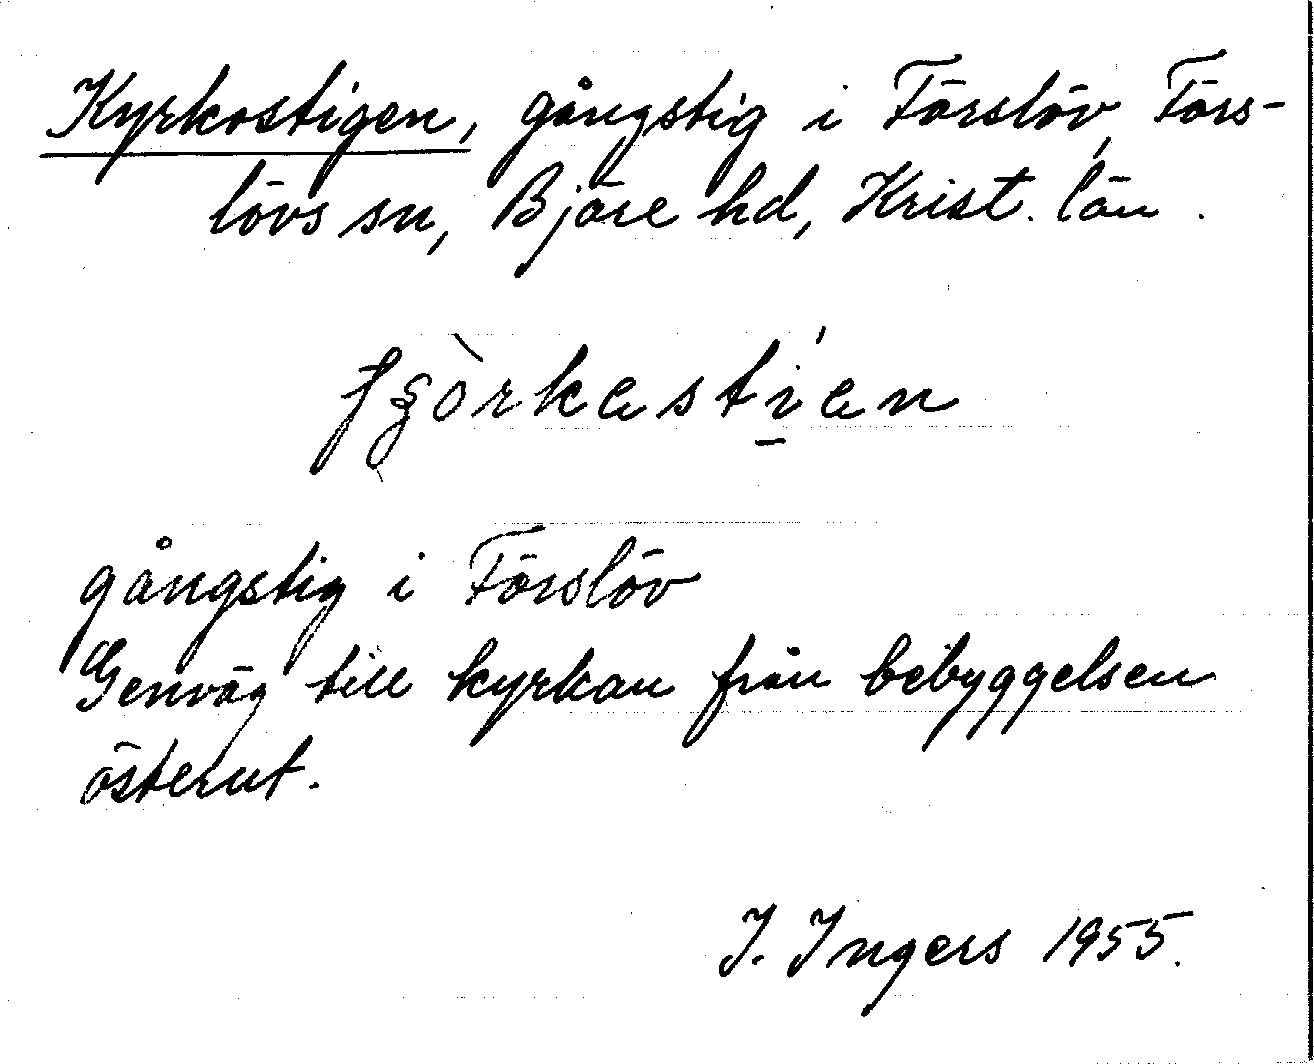 Kyrkostigen, gångstig i Förslöv, Förs-
lövs sn, Bjäre hd, Krist. län.
gångstig i Förslöv
Genväg till kyrkan från bebyggelsen
österut.
I. Ingers 1955.